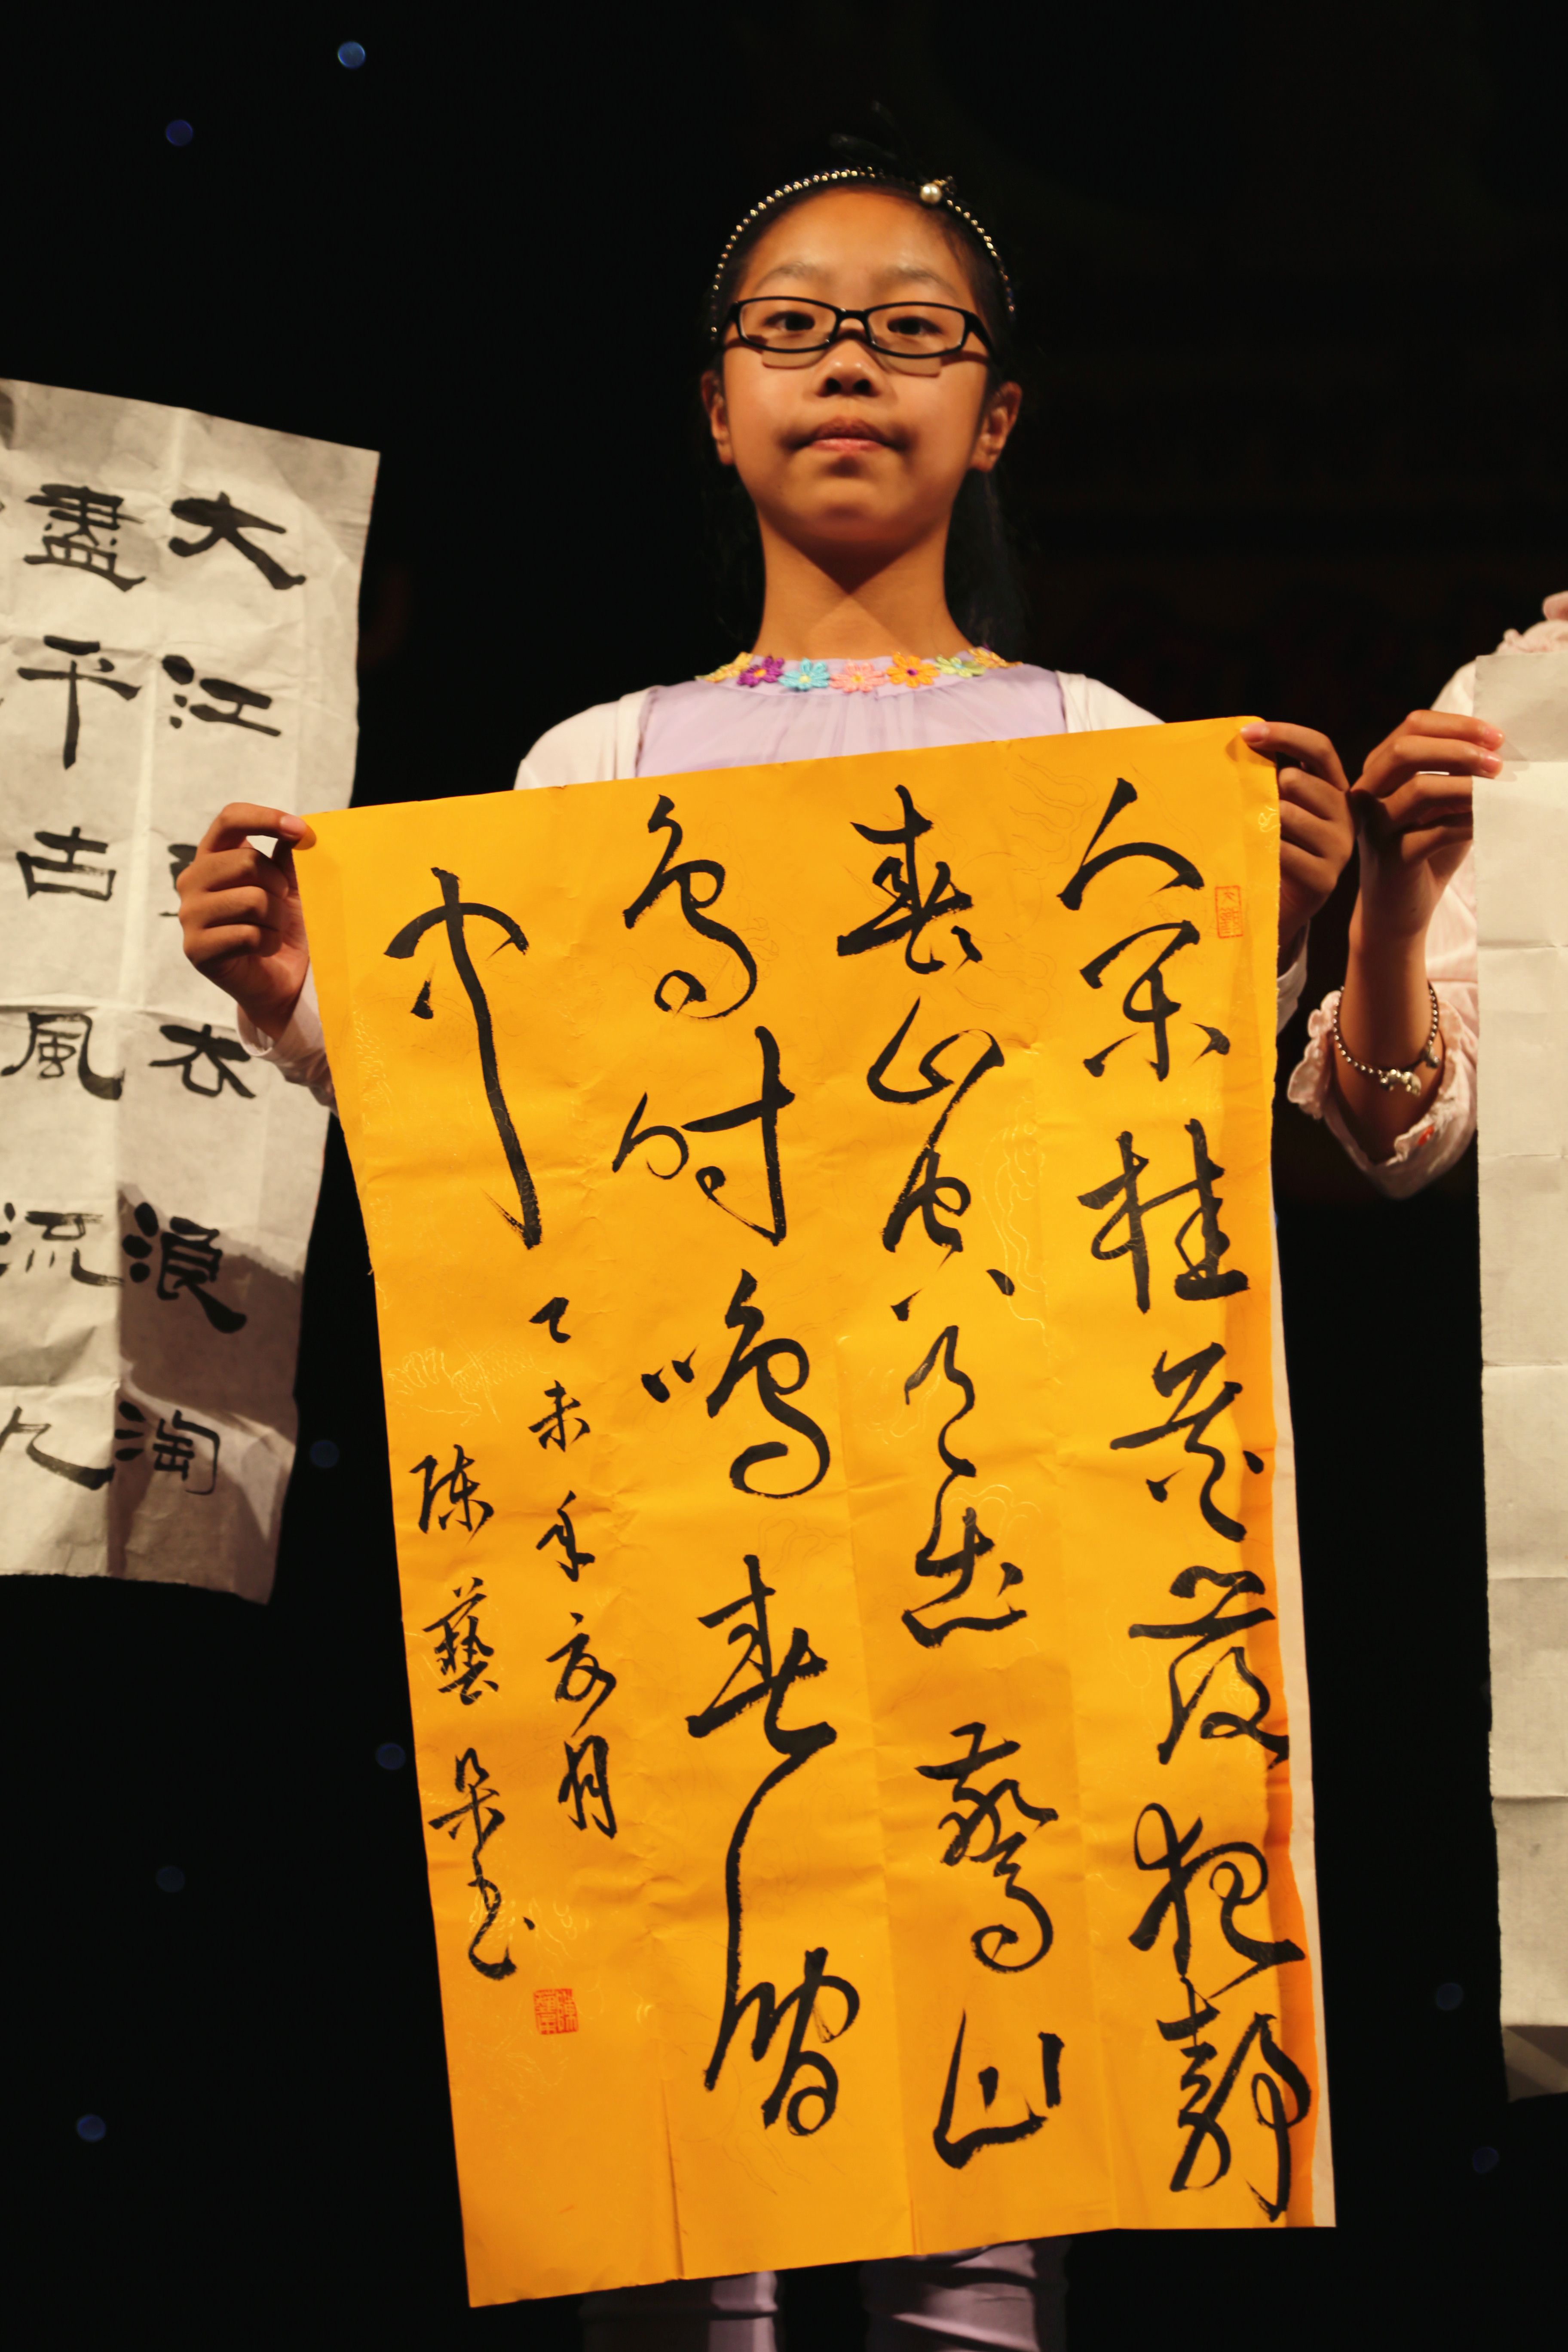 人閑桂花落夜静
春山空月出驚山
鳥时鳴春澗
中
乙未年夏月
陈藝朵书
大江去浪淘
盡千古風流人